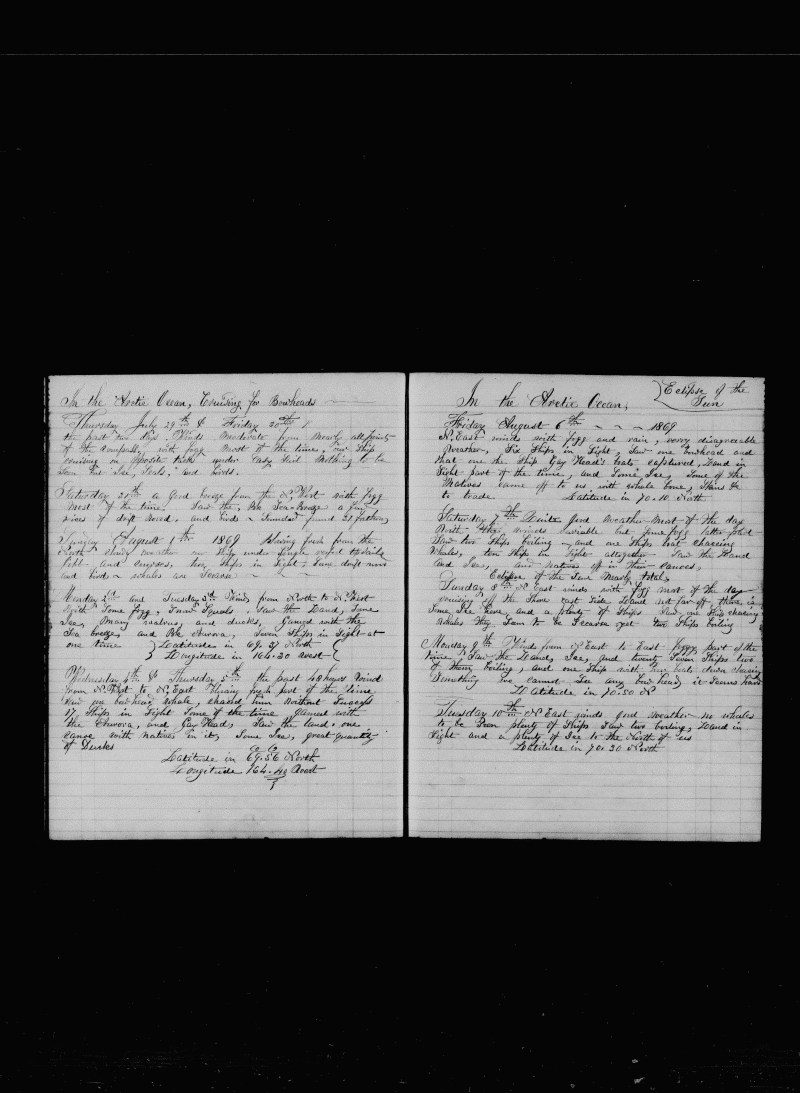 In the Arctic Ocean, Cruising for Bowheads
Thursday July 29th & Friday 30th
the past two days Winds Moderate from Nearly all points
of the Compass, with fogg Most of the time, our Ship
Cruising on opposite tacks under Easy Sail Nothing to be
Seen but Ice, Seals, and birds.
Saturday a good breeze from the N West with fogg
Most of the time. Saw the Bk Sea Breeze a few
pieces of drift Wood, and birds found 21 fathoms
Sunday August 1st 1869 Blowing fresh from the
North our Ship under Single reefed topsails
Jibb and two Ships in Sight; Some drift wood
and birds whales are Scarce
Monday 2nd and Tuesday 3rd Wind from North to N West
With Some fogg, Snow Squals, Saw the Land, Some
Ice, Many walrus, and ducks, Gamed with the
Sea breeze and Bk Awora, Seven Ships in Sight at
one time Latitude in 69.37 North
Longitude in 164.30 West
Wednesday 4th & Thursday 5th the past 48 hours Wind
from N West to N East Blowing fresh part of the time
Saw one bowhead Whale, chased him Without Success
17 Ships in Sight Some of the time Gamed with
the Awora, and Gay Head, Saw the land, one
canoe with natives in it, Some Ice, great quantity
of Ducks
Latitude in 69.56 North
Longitude 164.40 West
In the Arctic Ocean,
Eclipse of the
Sun
Friday August 6th 1869
N East winds with fogg and rain, very disagreeable
Weather, Six Ships in Sight, Saw one bowhead and
that one the Ship Gay Head's boats captured, Land in
Sight part of the time, and Some Ice, Some of the
Natives came off to us with whale bone, Skins &c
to trade. Latitude in 70.10 North
Saturday 7th Quite good Weather Most of the day
winds variable but some fogg latter part
Saw two Ships boiling and one Ships boat chaseing
Whales, ten Ships in Sight altogether Saw the Land
and Ice, and Natives off in their canoes,
Eclipse of the Sun Nearly total,
Sunday 8th N East winds with fogg most of the day
cruising off the Shore East Side Land not far off there is
Some Ice here, and a plenty of Ships Saw one Ship chaseing
whales they Seam to be Scarce yet two Ships boiling
Monday 9th Wind from N East to East foggy part of the
time, Saw the Land, Ice, and twenty Seven Ships two
of them boiling, and one Ship with her boats down chaseing
Something we cannot See any bow head, it Seams hard
Latitude in 70.50 N
Tuesday 10th N East winds good weather no whales
to be Seen plenty of Ships Saw two boiling, Land in
Sight and a plenty of Ice to the North of us
Latitude in 70.30 North